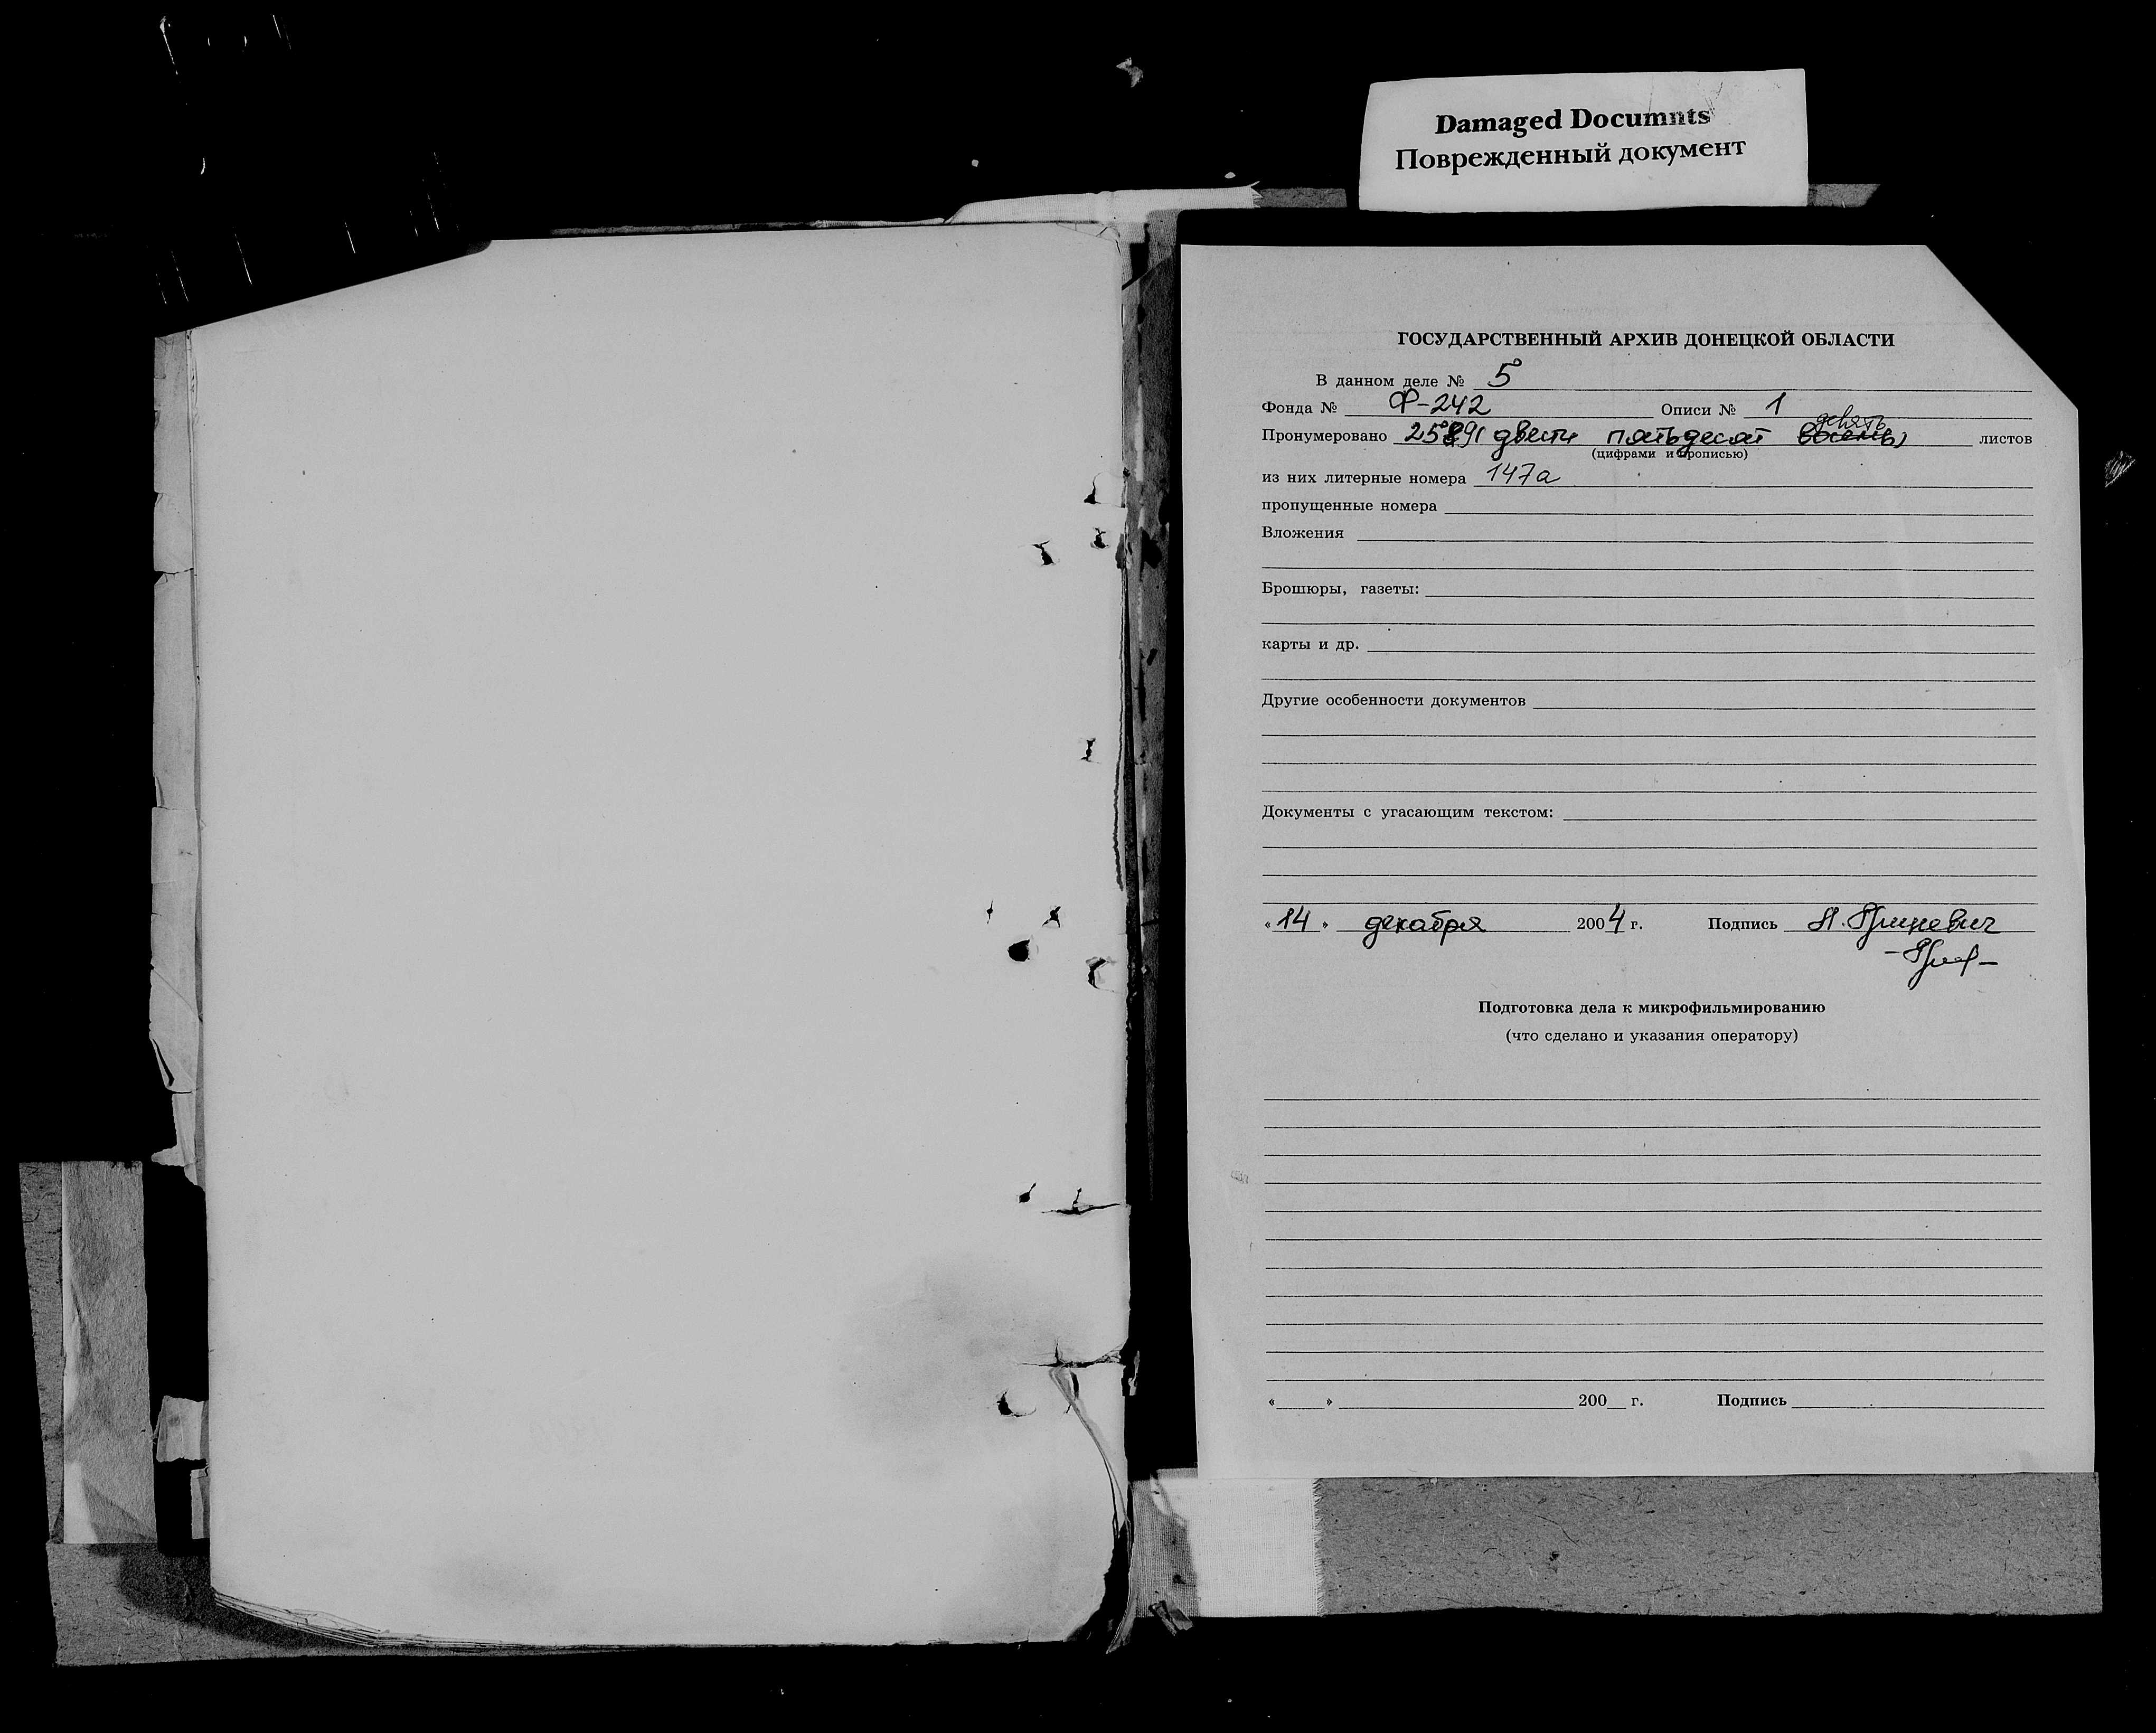 Damaged Documnts
Поврежденный документ
ГОСУДАРСТВЕННЫЙ АРХИВ ДОНЕЦКОЙ ОБЛАСТИ
В данном деле № 5
Фонда № Ф-242 Описи № 1
девять
Пронумеровано 2589 (двести пятьдесят восемь) листов
(цифрами и прописью)
из них литерные номера 147а
пропущенные номера
Вложения
Брошюры, газеты:
карты и др.
Другие особенности документов
Документы с угасающим текстом:
«14» декабря 2004 г. Подпись
Подготовка дела к микрофильмированию
(что сделано и указания оператору)
« » 200 г. Подпись